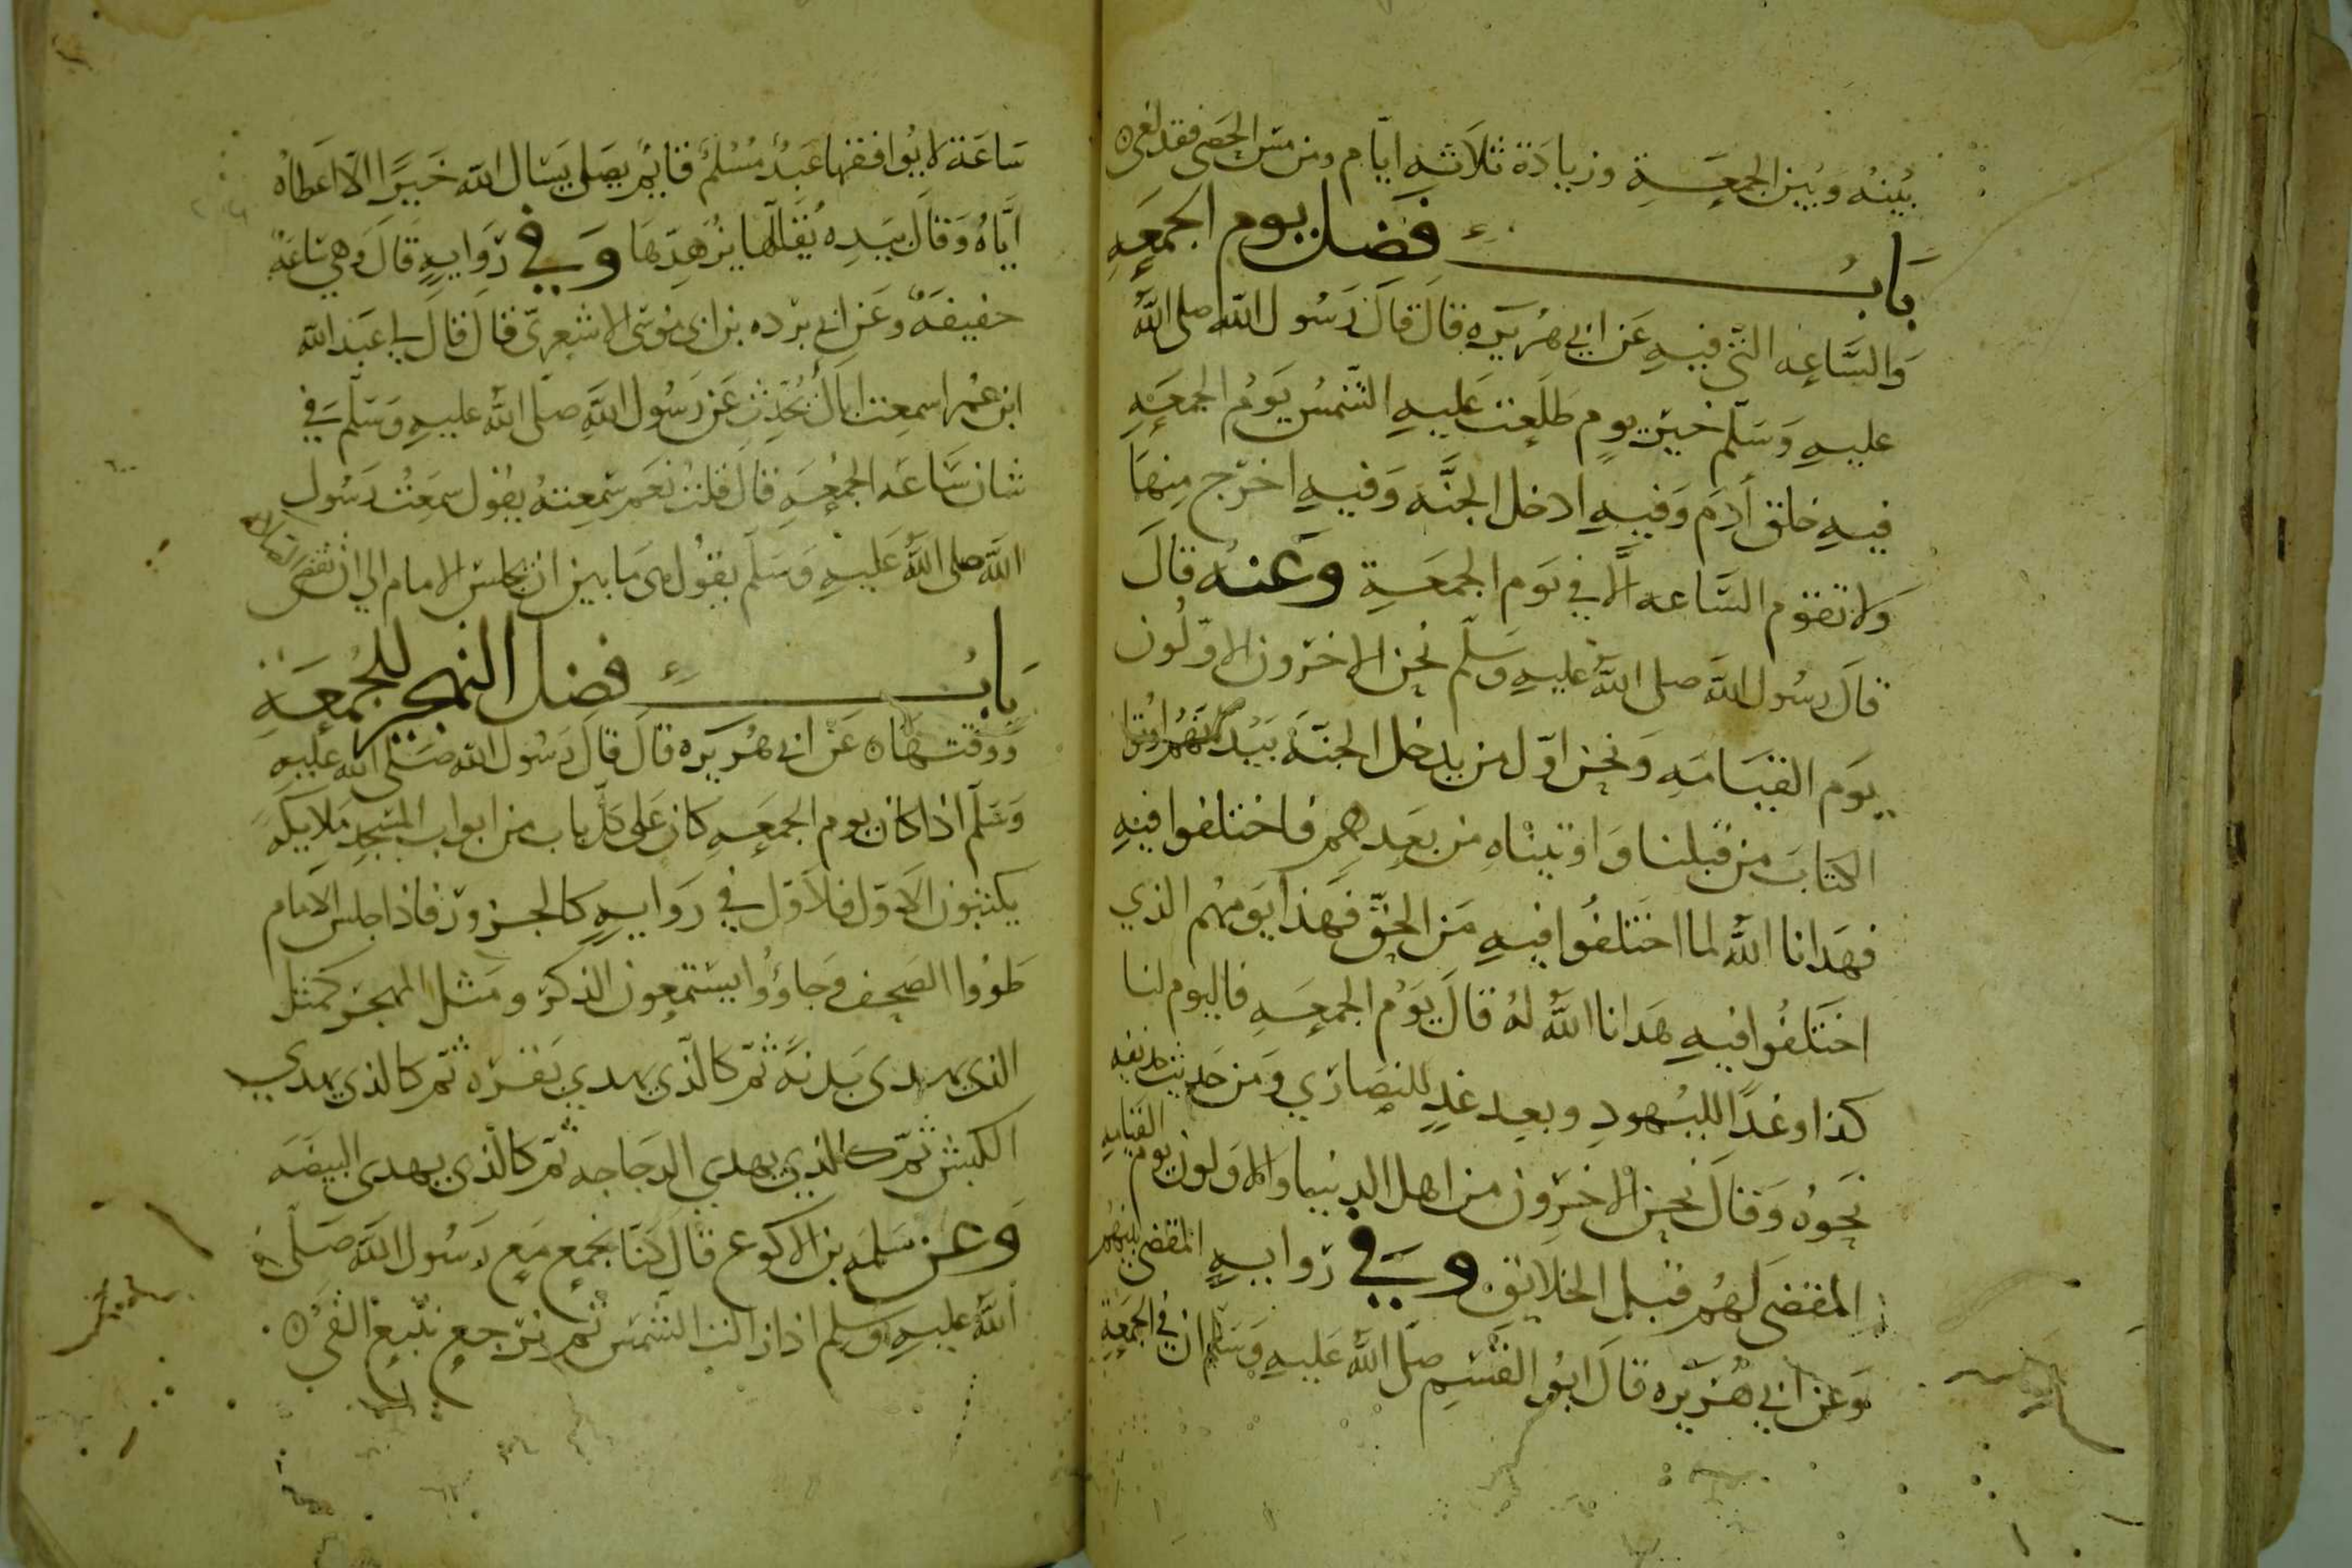 بينه وبين الجمعة وزيادة ثلاثه ايام ومن مس الحصى فقد لغى
باب فضل يوم الجمعه
والساعه التي فيه عن ابي هريره قال قال رسول الله صلى الله
عليه وسلم خير يوم طلعت عليه الشمس يوم الجمعه
فيه خلق آدم وفيه ادخل الجنه وفيه اخرج منها
ولا تقوم الساعه الا في يوم الجمعة وعنه قال
قال رسول الله صلى الله عليه وسلم نحن الاخرون الاولون
يوم القيامه ونحن اول من يدخل الجنه بيد انهم اوتوا
الكتاب من قبلنا واوتيناه من بعدهم فاختلفوا فيه
فهدانا الله لما اختلفوا فيه من الحق فهذا يومهم الذي
اختلفوا فيه هدانا الله له قال يوم الجمعه فاليوم لنا
كذا وغدا لليهود وبعد غد للنصارى ومن حديث حذيفه
نحوه وقال نحن الاخرون من اهل الدنيا والاولون يوم القيامه
المقضي لهم قبل الخلايق وفي روايه المقضي بينهم
وعن ابي هريره قال ابو القسم صلى الله عليه وسلم ان في الجمعة
ساعة لا يوافقها عبد مسلم قايم يصلي يسال الله خيرا الا اعطاه
اياه وقال بيده يقللها يزهدها وفي روايه قال وهي ساعة
خفيفة وعن ابي برده بن ابي موسى الاشعري قال قال لي عبد الله
ابن عمر اسمعت اباك يحدث عن رسول الله صلى الله عليه وسلم في
شان ساعه الجمعه قال قلت نعم سمعته يقول سمعت رسول
الله صلى الله عليه وسلم يقول هي ما بين ان يجلس الامام الى ان تقضى الصلاه
باب فضل التهجير للجمعة
ووقتها عن ابي هريره قال قال رسول الله صلى الله عليه
وسلم اذا كان يوم الجمعه كان على كل باب من ابواب المسجد ملايكه
يكتبون الاول فلاول في روايه كالجزور فاذا جلس الامام
طووا الصحف وجاؤوا يستمعون الذكر ومثل المهجر كمثل
الذي يهدى بدنة ثم كالذي يهدي بقره ثم كالذي يهدي
الكبش ثم كالذي يهدي الدجاجه ثم كالذي يهدى البيضه
وعن سلمه بن الاكوع قال كنا نجمع مع رسول الله صلى
الله عليه وسلم اذا زالت الشمس ثم نرجع نتبع الفي